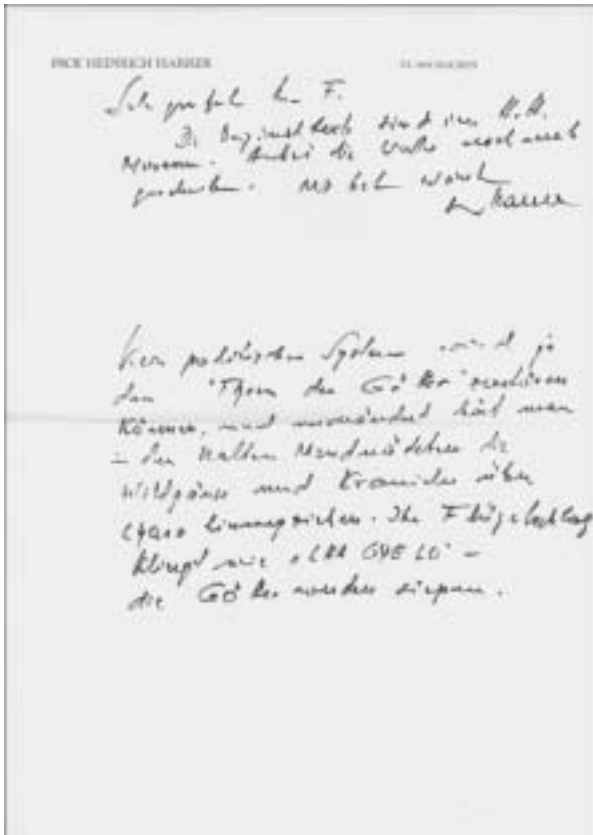 PROF. HEINRICH HARRER
Sehr geehrter Herr F.
Die sind im H.H.
Museum. Anbei die noch mal
geschrieben. Mit
Harrer
Kein politisches System wird je
den "Thron der Götter" zerstören
können, und unverändert hört man
in den kalten Mondnächten die
Wildgänse und Kraniche über
Lhasa hinwegziehen. Ihr Flügelschlag
klingt wie "LHA GYELO" –
die Götter werden siegen.